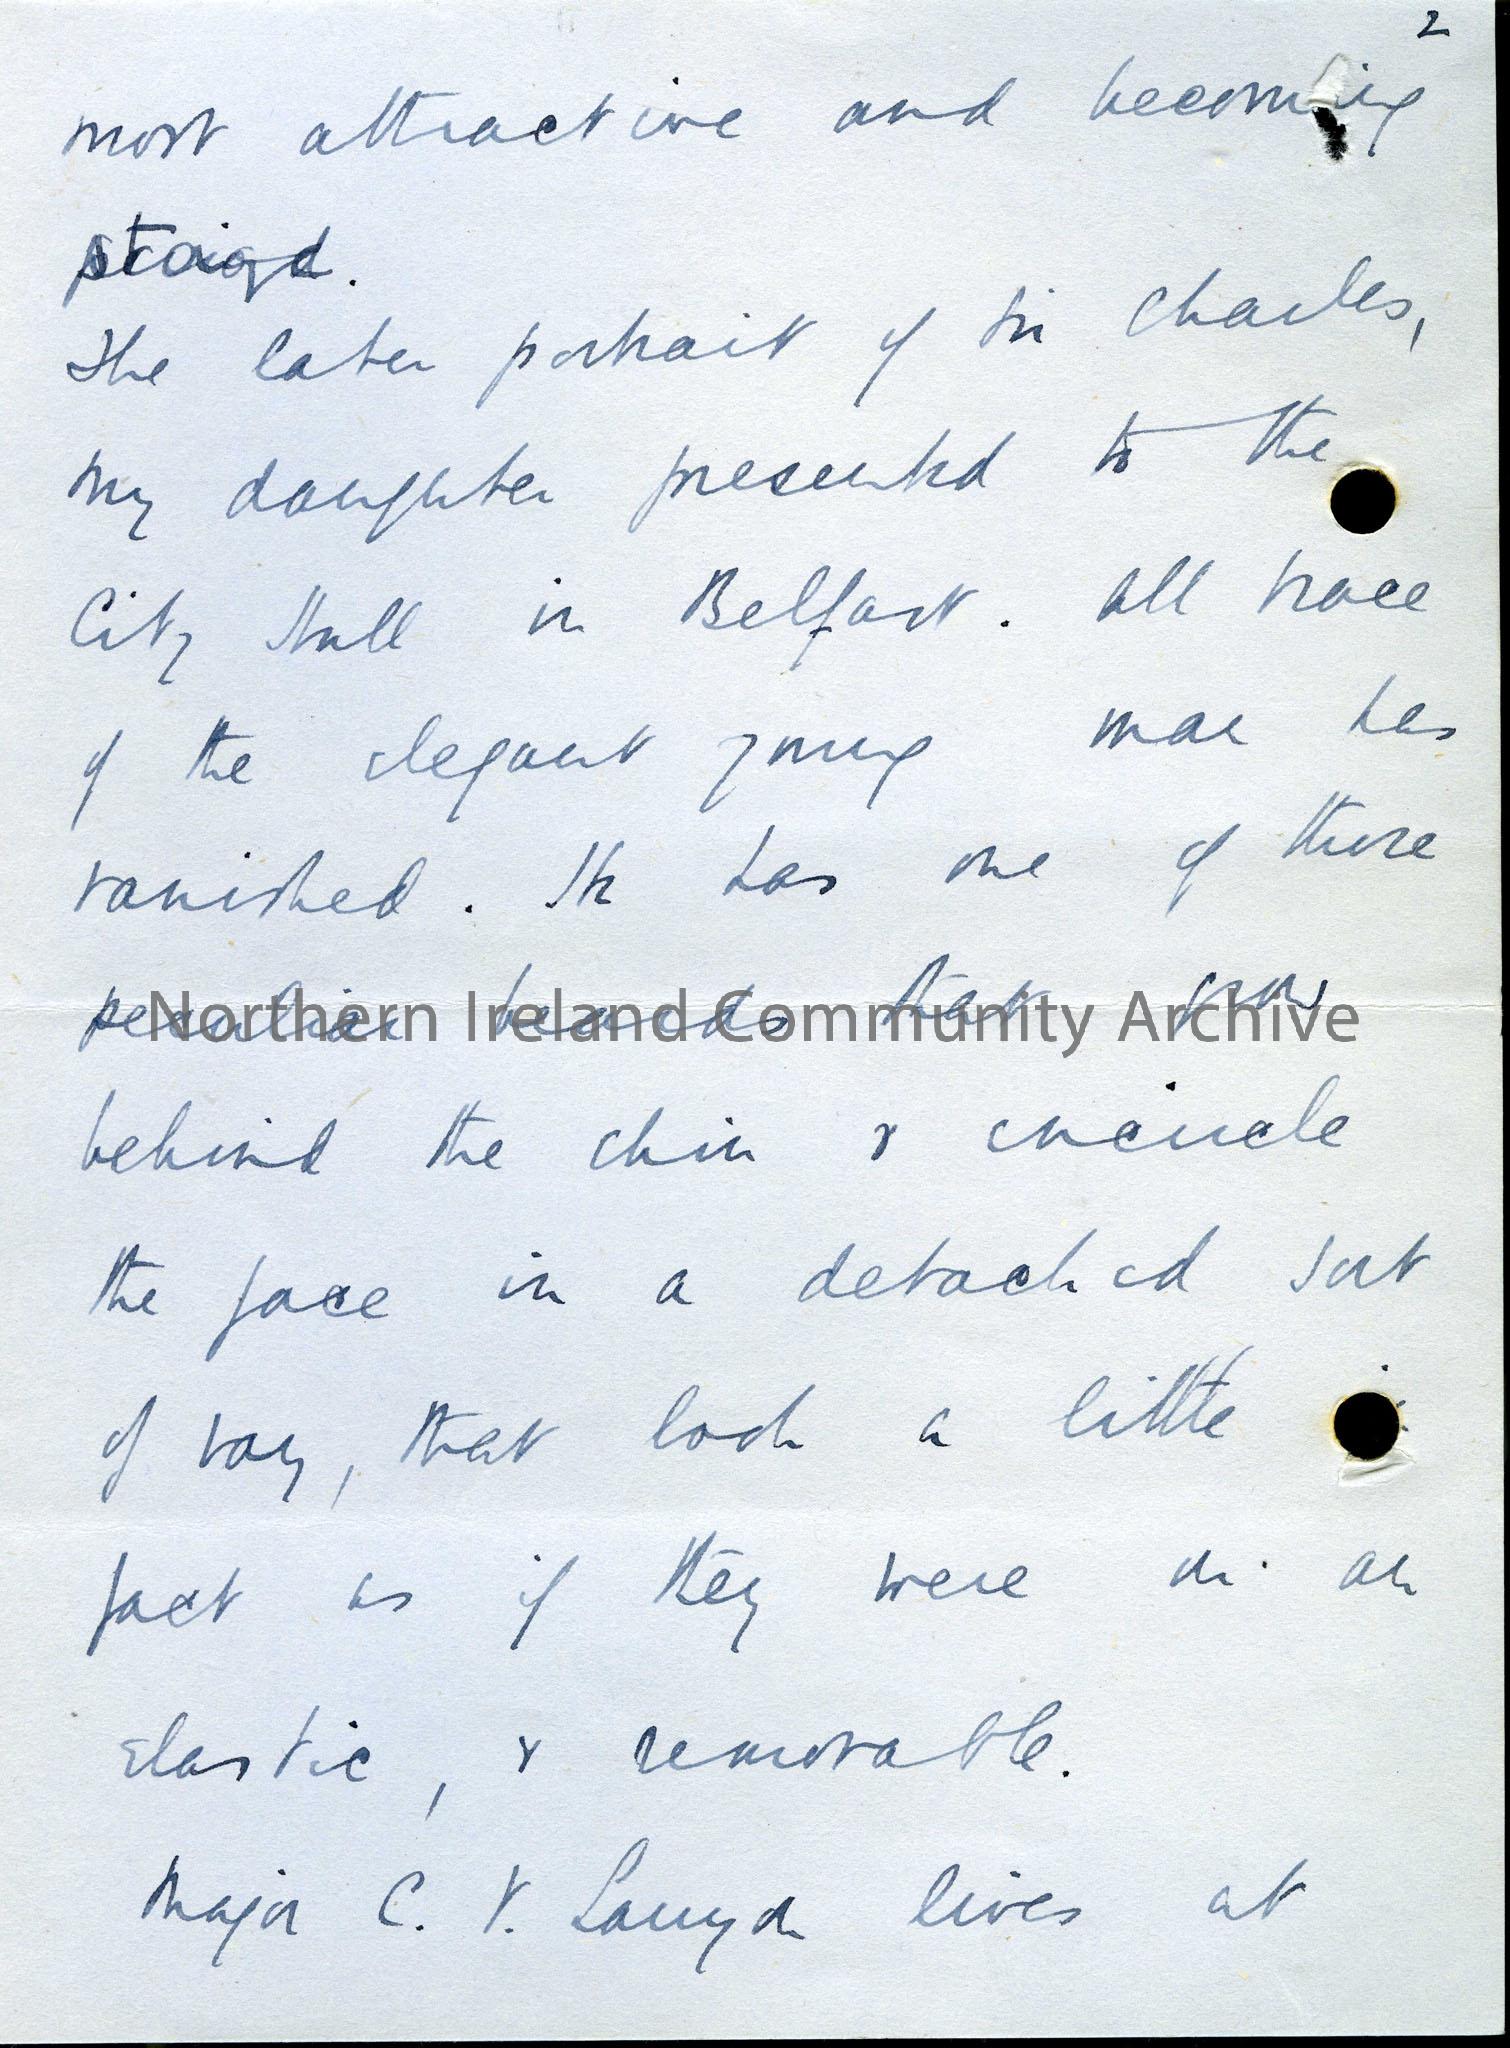 2
most attractive and becoming
staigd.
The later portrait of Sir Charles,
my daughter presented to the
City Hall in Belfast. All trace
of the elegant young man has
vanished. He has one of those
peculiar beards that grow
Northern Ireland Community Archive
behind the chin & encircle
the face in a detached sort
of way, that look a little
fact as if they were on an
elastic, & removable.
Major C. V. Lanyon lives at